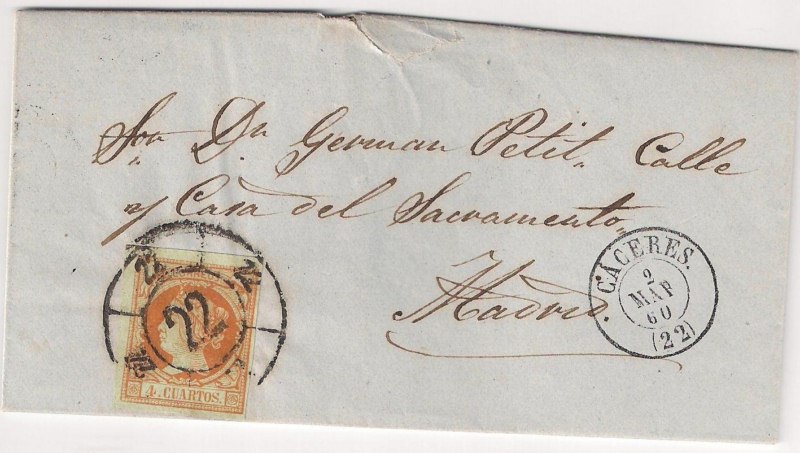 Sor Dn German Petit. Calle
y Casa del Sacramento.
Madrid.
CÁCERES.
2
MAR
60
(22)
22
22
4 CUARTOS.